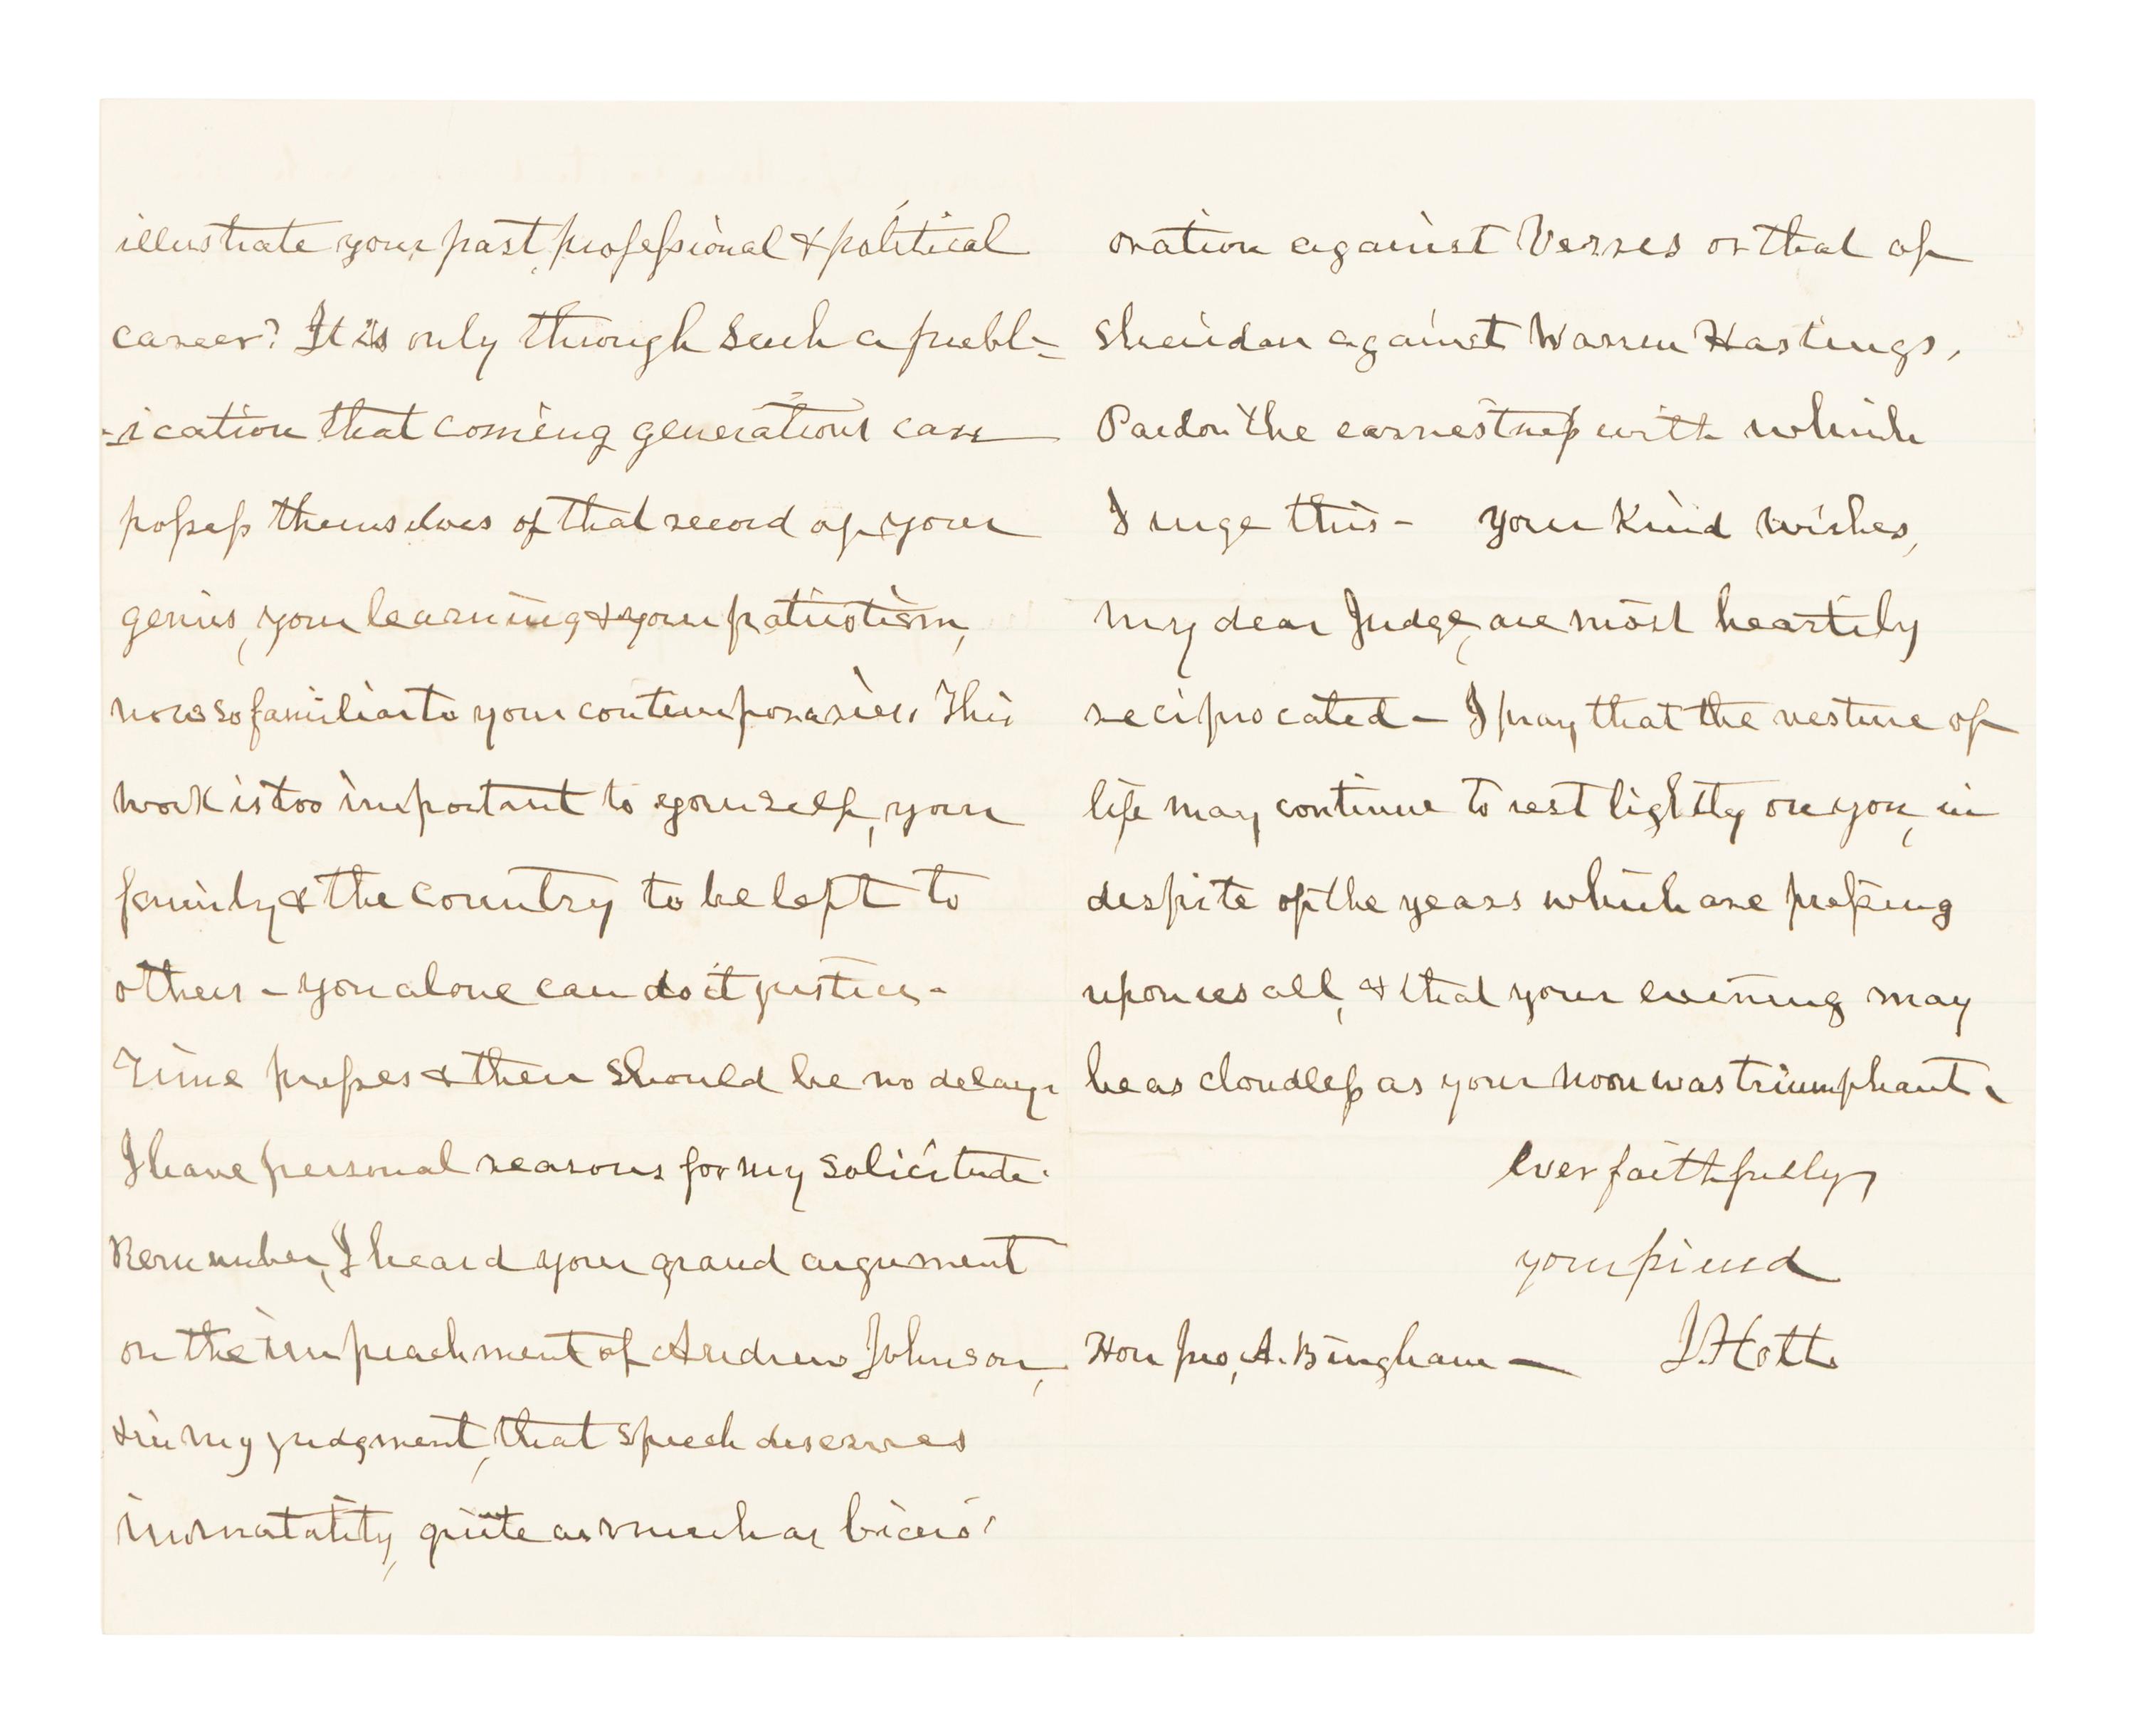 illustrate your past, professional & political
career? It is only through such a publ=
=ication that coming generations can
possess themselves of that record of your
genius, your learning & your patriotism,
now so familiar to your contemporaries. This
work is too important to yourself, your
family & the country to be left to
others - you alone can do it justice -
Time presses & there should be no delay.
I have personal reasons for my solicitude.
Remember, I heard your grand argument
on the impeachment of Andrew Johnson,
& in my judgment, that speech deserves
immortality, quite as much as Cicero's
oration against Verres or that of
Sheridan against Warren Hastings.
Pardon the earnestness with which
I urge this - your kind wishes,
my dear Judge, are most heartily
reciprocated - I pray that the vesture of
life may continue to rest lightly on you, in
despite of the years which are pressing
upon us all, & that your evening may
be as cloudless as your noon was triumphant.
Ever faithfully,
your friend
Hon Jno, A. Bingham — J. Holt